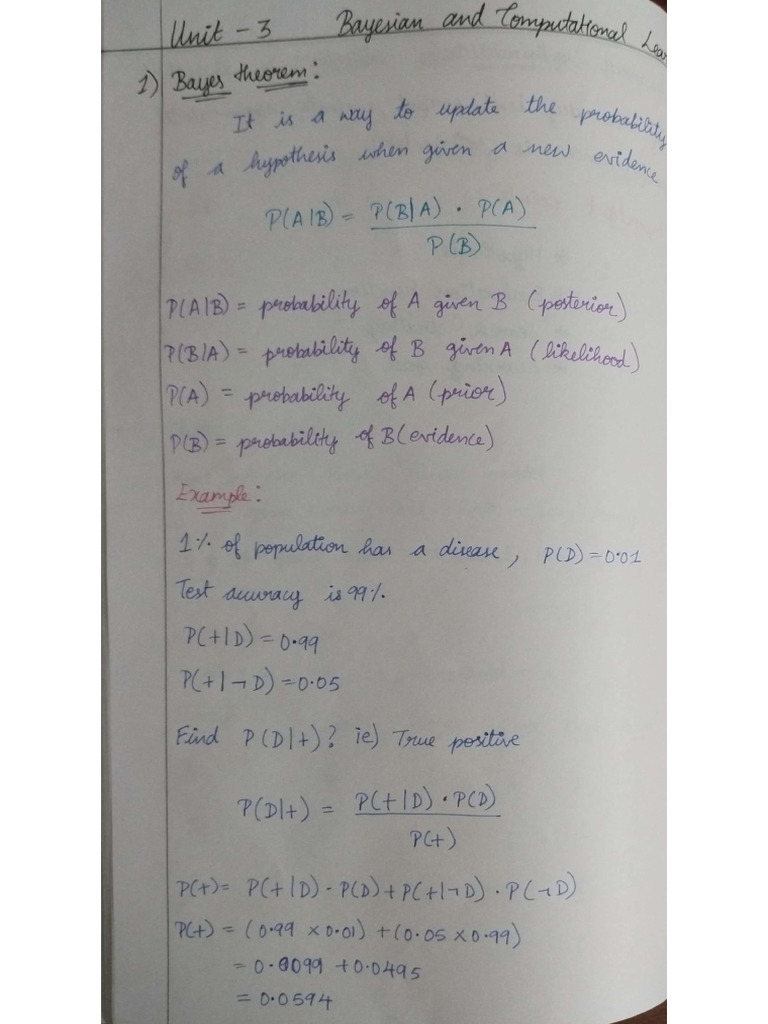 Unit - 3 Bayesian and Computational Lear
1) Bayes theorem:
It is a way to update the probability
of a hypothesis when given a new evidence
P(A|B) = P(B|A) · P(A)
P(B)
P(A|B) = probability of A given B (posterior)
P(B|A) = probability of B given A (likelihood)
P(A) = probability of A (prior)
P(B) = probability of B (evidence)
Example:
1% of population has a disease, P(D) = 0.01
Test accuracy is 99%.
P(+|D) = 0.99
P(+|¬D) = 0.05
Find P(D|+)? ie) True positive
P(D|+) = P(+|D) · P(D)
P(+)
P(+) = P(+|D) · P(D) + P(+|¬D) · P(¬D)
P(+) = (0.99 × 0.01) + (0.05 × 0.99)
= 0.0099 + 0.0495
= 0.0594